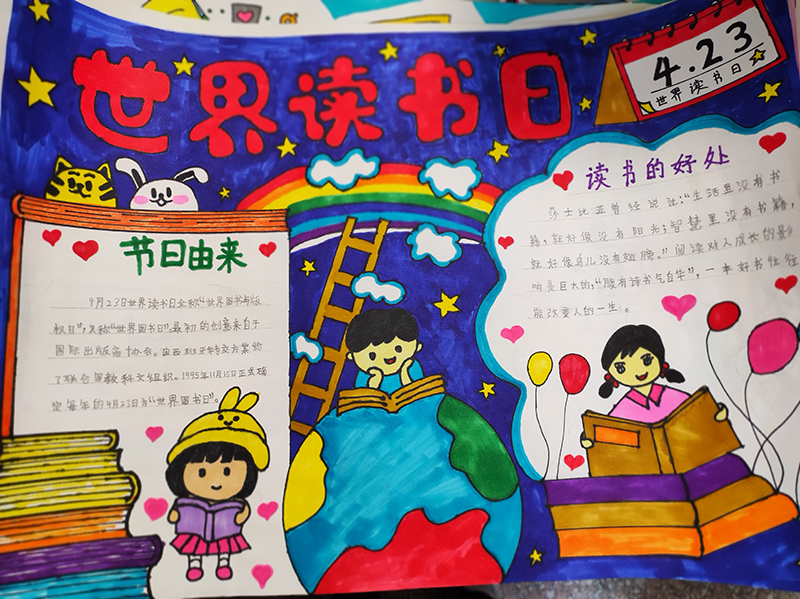 世界读书日
4.23
世界读书日
节日由来
4月23日世界读书日全称“世界图书与版
权日”,又称“世界图书日”。最初的创意来自于
国际出版商协会。由西班牙转交方案给
了联合国教科文组织。1995年11月15日正式确
定每年的4月23日为“世界图书日”。
读书的好处
莎士比亚曾经说过:“生活里没有书
籍,就好像没有阳光;智慧里没有书籍,
就好像鸟儿没有翅膀。”阅读对人成长的影
响是巨大的,“腹有诗书气自华”,一本好书往往
能改变人的一生。